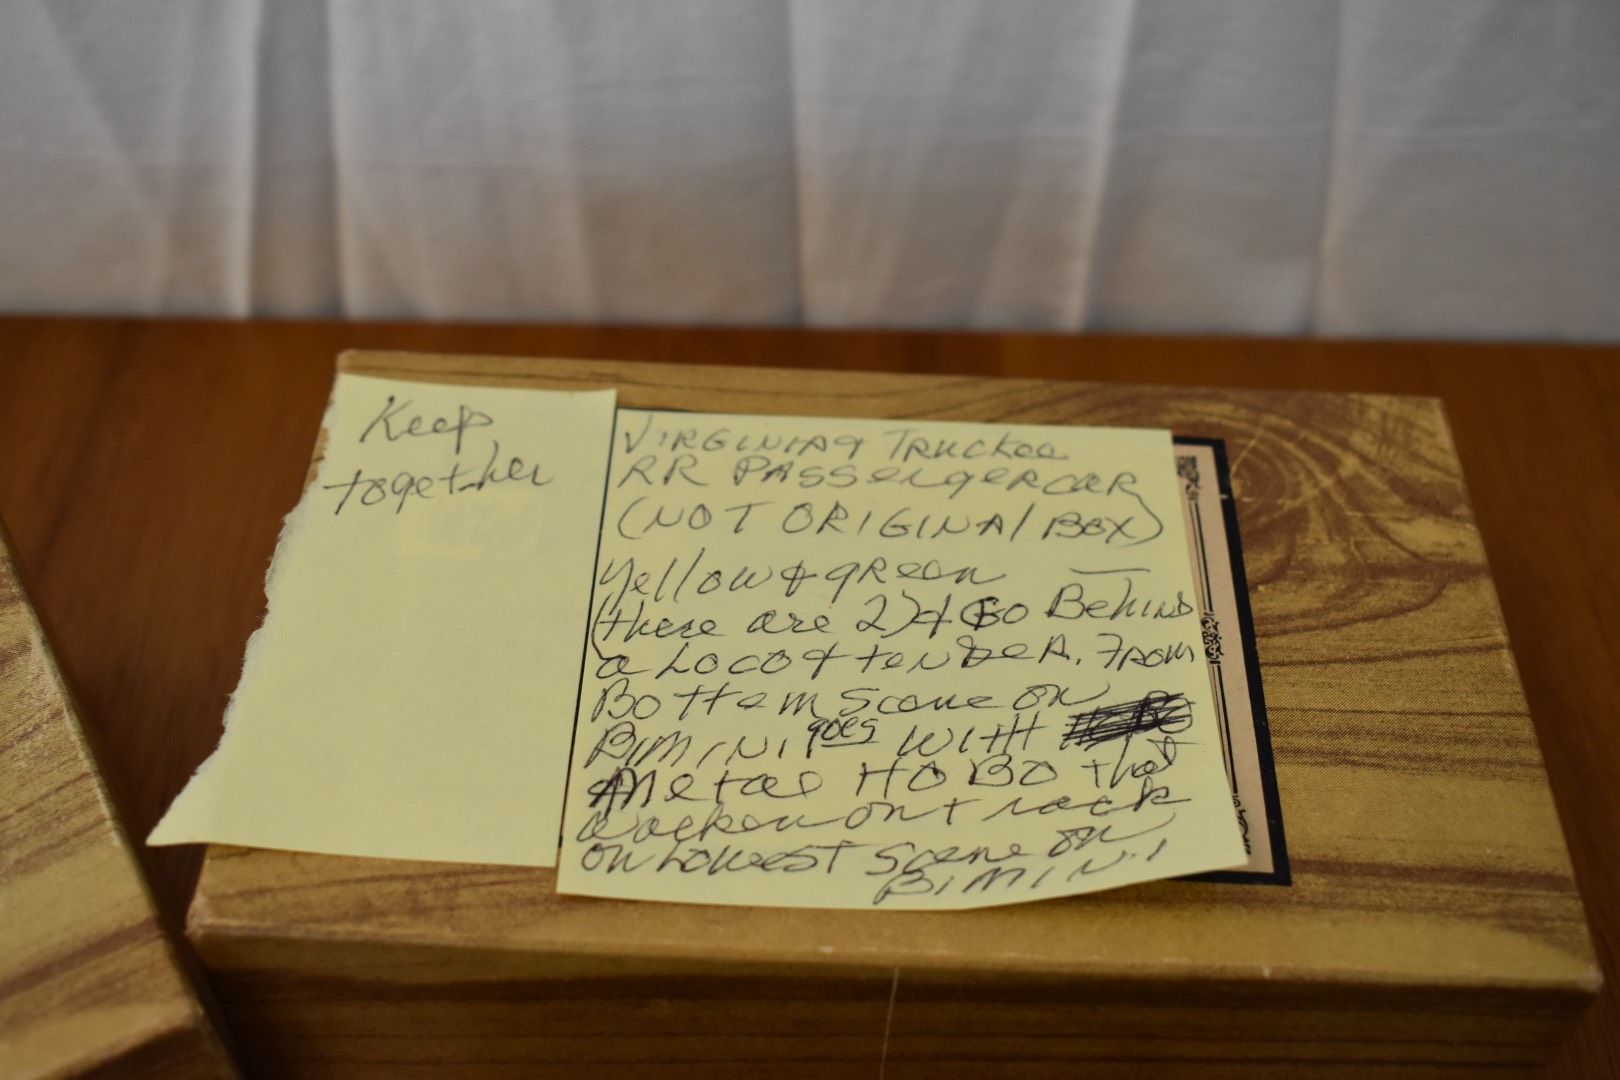 Keep
together
VIRGINIA & TRUCKEE
RR PASSengeR caR
(NOT ORIGINAl BOX)
Yellow & gReen —
(there are 2) & GO BeHIND
a Loco & tenDeR. From
Bottem Scene on
BIMINI goes WITH
Metal HOBO that
on track
on Lowest Scene on
BIMINI